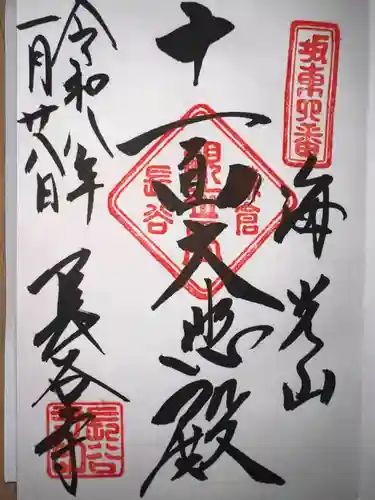 坂東四番
海光山
十一面大悲殿
鎌倉
観世音
長谷
令和八年
一月廿八日
長谷寺
長谷